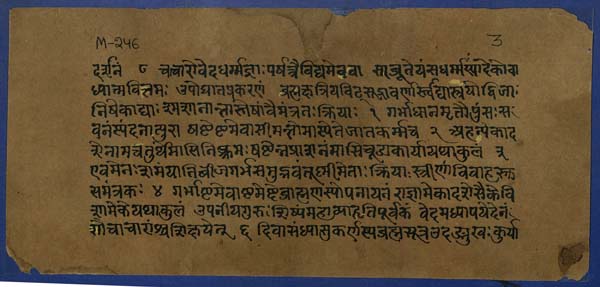 M-246
3
दर्शनं ८ चत्वारोवेदधर्मज्ञाः पर्षत्त्रैविद्यमेववा साब्रूतेयंसधर्मःस्यादेकोवा
ध्यात्मवित्तमः उपोद्घातप्रकरणं ब्रह्मक्षत्रियविट्शूद्रावर्णास्त्वाद्यास्त्रयोद्विजाः
निषेकाद्याः श्मशानान्तास्तेषांवैमंत्रतः क्रियाः १ गर्भाधानमृतौपुंसः स
वनंस्पंदनात्पुरा षष्ठेष्टमेवासीमन्तोमास्येतेजातकर्मच २ अहन्येकाद
शेनामचतुर्थेमासिनिष्क्रमः षष्ठेन्नप्राशनंमासिचूडाकार्यायथाकुलं ३
एवमेनः शमंयातिबीजगर्भसमुद्भवं तूष्णीमेताः क्रियाः स्त्रीणांविवाहस्तु
समंत्रकः ४ गर्भाष्टमेवाष्टमेब्देब्राह्मणस्योपनायनं राज्ञामेकादशेसैकेवि
शामेकेयथाकुलं उपनीयगुरुः शिष्यंमहाव्याहृतिपूर्वकं वेदमध्यापयेदेनं
शौचाचारांश्चशिक्षयेत् ६ दिवासंध्यासुकर्णस्थब्रह्मसूत्रउदङ्मुखः कुर्या